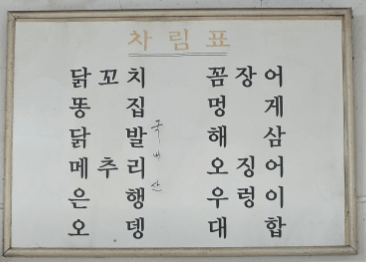 차림표
닭꼬치 꼼장어
똥집 멍게
닭발 국내산 해삼
메추리 오징어
은행 우렁이
오뎅 대합